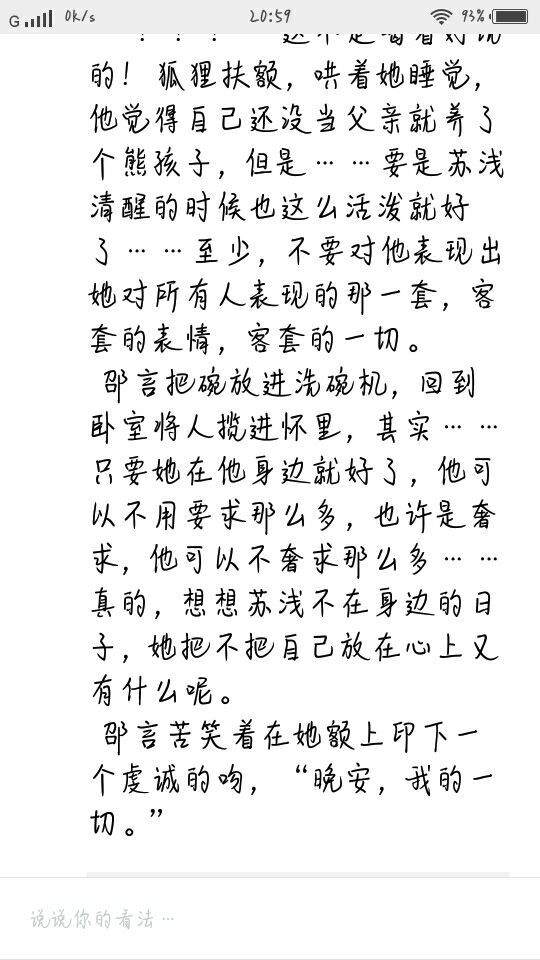 G 0k/s 20:59 93%
的！狐狸扶额，哄着她睡觉，
他觉得自己还没当父亲就养了
个熊孩子，但是……要是苏浅
清醒的时候也这么活泼就好
了……至少，不要对他表现出
她对所有人表现的那一套，客
套的表情，客套的一切。
邵言把碗放进洗碗机，回到
卧室将人揽进怀里，其实……
只要她在他身边就好了，他可
以不用要求那么多，也许是奢
求，他可以不奢求那么多……
真的，想想苏浅不在身边的日
子，她把不把自己放在心上又
有什么呢。
邵言苦笑着在她额上印下一
个虔诚的吻，“晚安，我的一
切。”
说说你的看法…